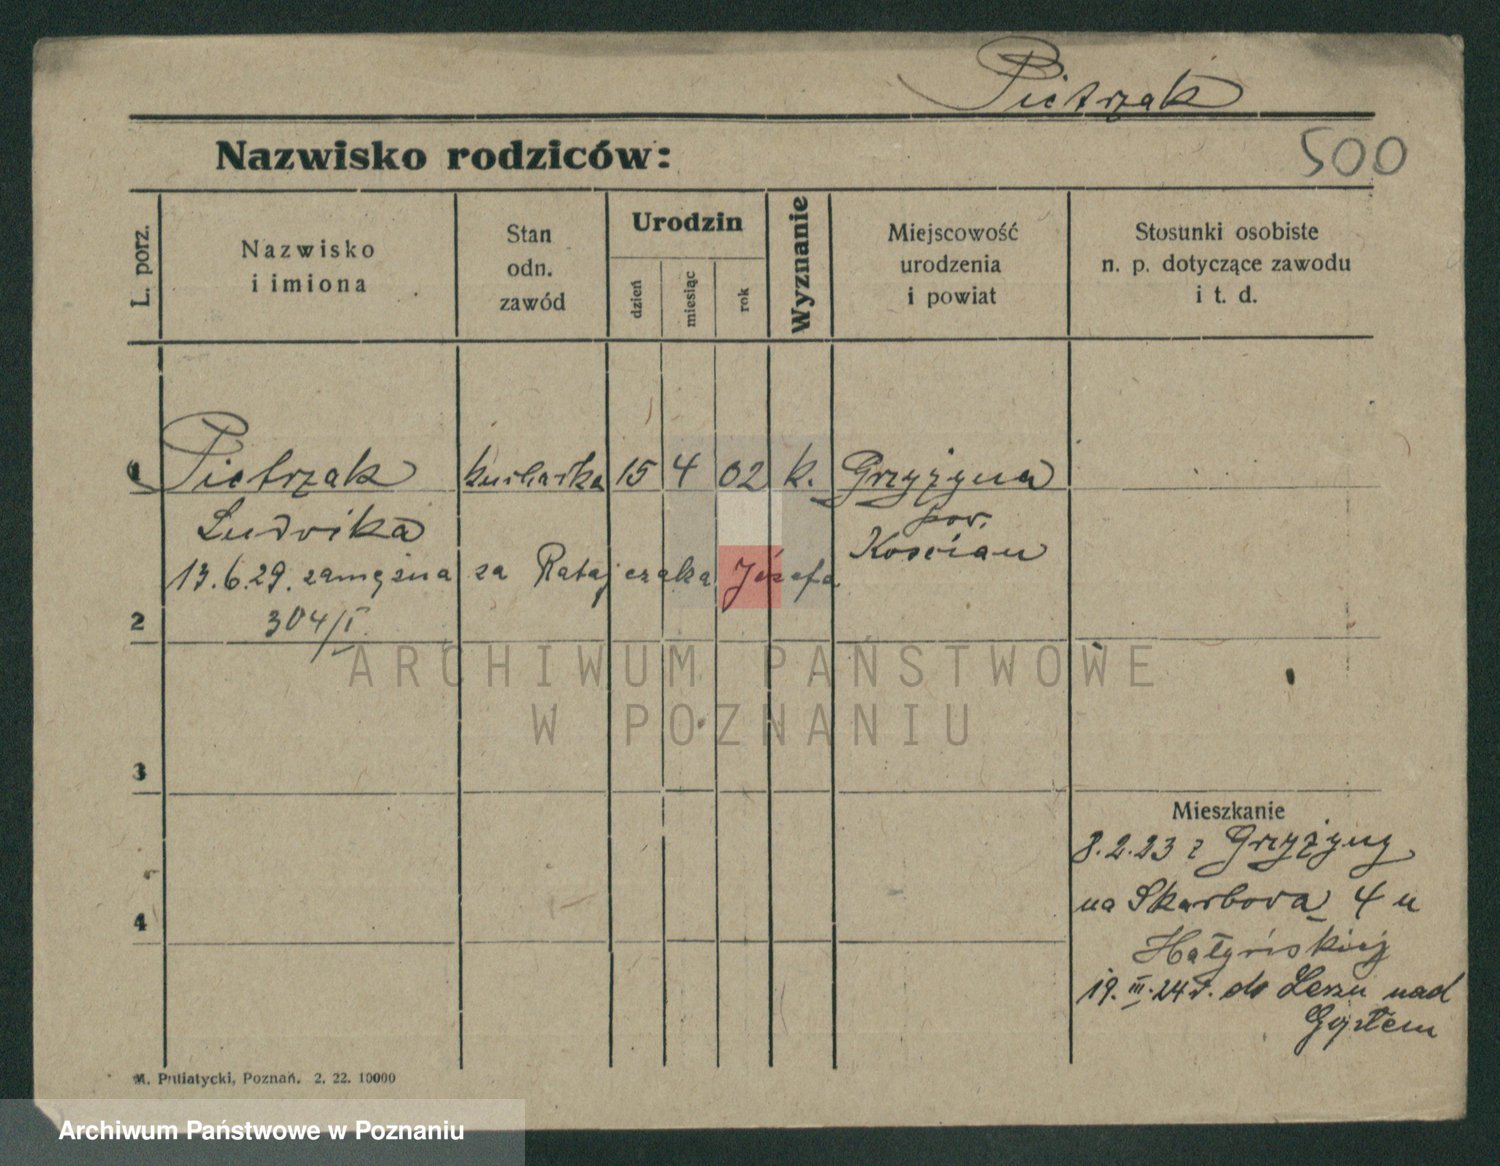 Pietrzak
Nazwisko rodziców:
500
L. porz.
Nazwisko
i imiona
Stan
odn.
zawód
Urodzin
dzień
miesiąc
rok
Wyznanie
Miejscowość
urodzenia
i powiat
Stosunki osobiste
n. p. dotyczące zawodu
i t. d.
1 Pietrzak kucharka 15 4 02 k. Gryżyna
Ludwika pow.
Kościan
13.6.29. zamężna za Ratajczaka Józefa
2 304/I
ARCHIWUM PAŃSTWOWE
W POZNANIU
3
Mieszkanie
8.2.23 z Gryżyny
4
na Skarbowa 4 u
19.III.24 r. do nad
M. Putiatycki, Poznań. 2. 22. 10000
Archiwum Państwowe w Poznaniu